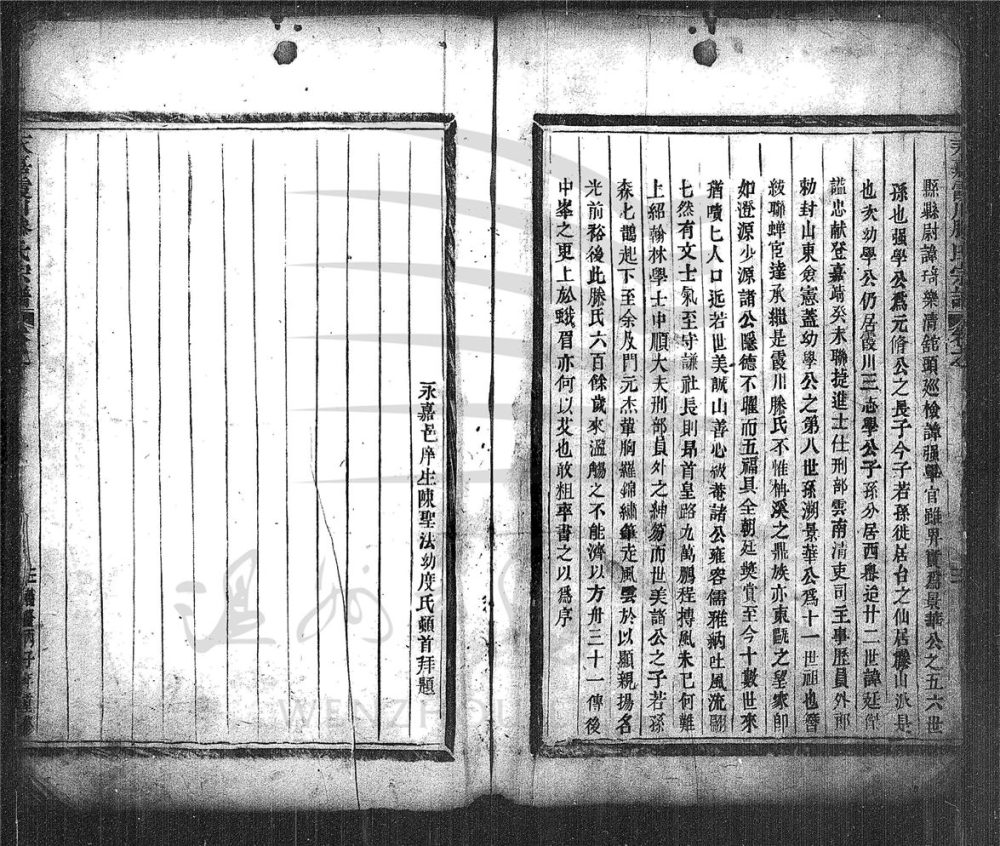 縣縣尉諱琦樂清館頭巡檢諱强學官雖界實爲景華公之五六世
孫也强學公爲元脩公之長子今子若孫徙居台之仙居滕山派是
也次幼學公仍居霞川三志學公子孫分居西嶴迨廿二世諱廷
諡忠献登嘉靖癸未聯捷進士仕刑部雲南清吏司主事歷員外郎
勅封山東僉憲蓋幼學公之第八世孫溯景華公爲十一世祖也簪
紱聯蟬宦達承繼是霞川滕氏不惟楠溪之鼎族亦東甌之望家即
如澄源少源諸公隱德不曜而五福具全朝廷獎賞至今十數世來
猶嘖匕人口近若世美誠山善心諸公雍容儒雅吐風流翩
匕然有文士氣至守謙社長則昂首皇路九萬鵬程搏風未已何難
上紹翰林學士中順大夫刑部員外之紳笏而世美諸公之子若孫
森匕鵲起下至余及門元杰輩胸羅錦繡筆走風雲於以顯親揚名
光前裕後此滕氏六百餘歲來溫觴之不能濟以方舟三十一傳後
中峯之更上於蛾眉亦何以艾也敢粗率書之以爲序
永嘉邑庠生陳聖法幼度氏頓首拜題
永嘉霞川滕氏宗譜
WENZHOU